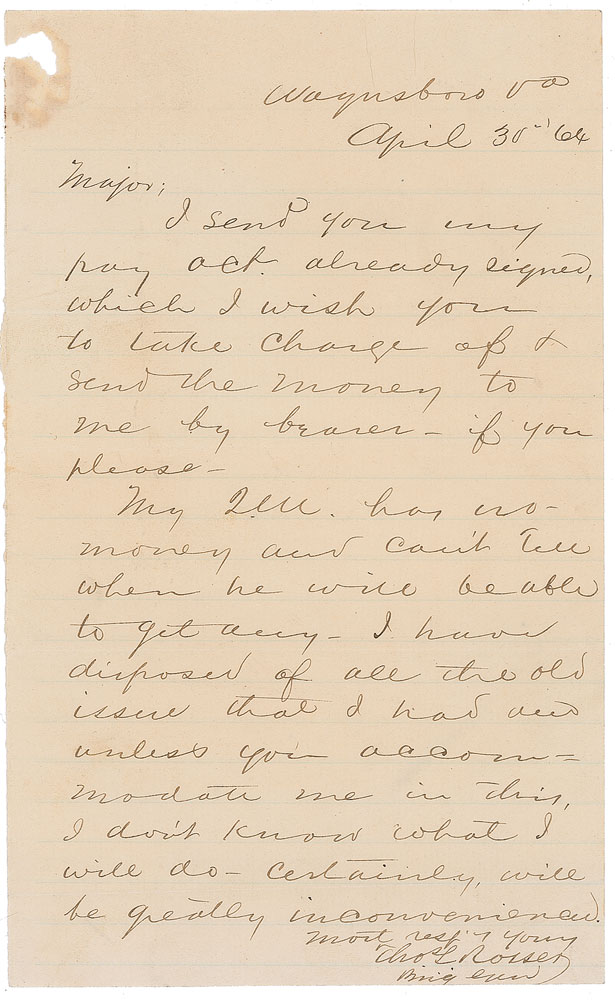 Waynsboro Va
April 30" 64
Major;
I send you my
pay act. already signed,
which I wish you
to take charge of &
send the money to
me by bearer - if you
please -
My Q.M. has no
money and can't tell
when he will be able
to get any - I have
disposed of all the old
issue that I had and
unless you accom=
modate me in this,
I don't know what I
will do - certainly, will
be greatly inconvenienced.
Most respty yours
Thos L Rosser
Brig Genl